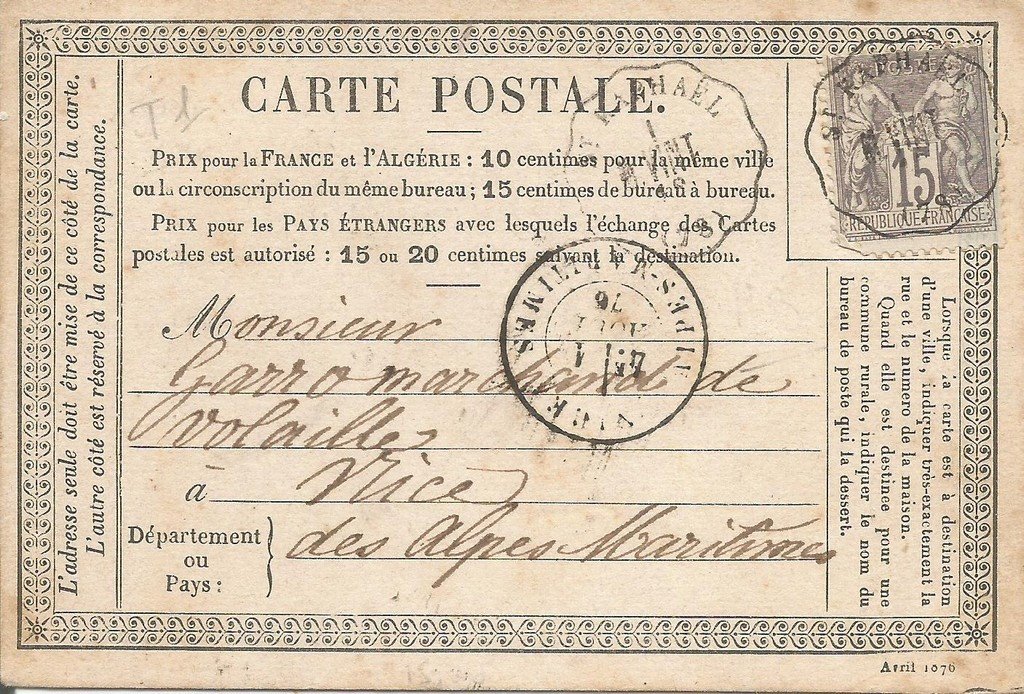 CARTE POSTALE.
PRIX pour la FRANCE et l'ALGÉRIE : 10 centimes pour la même ville
ou la circonscription du même bureau ; 15 centimes de bureau à bureau.
PRIX pour les PAYS ÉTRANGERS avec lesquels l'échange des Cartes
postales est autorisé : 15 ou 20 centimes suivant la destination.
Monsieur
Garro marchand de
volailles
à Nice
Département
ou
Pays :
des Alpes Maritimes
L'adresse seule doit être mise de ce côté de la carte.
L'autre côté est réservé à la correspondance.
T1
RAPHAËL
1
VINT
ALPES-MARITIMES
1
AOUT
76
ST RAPHAËL
VINT
15
REPUBLIQUE FRANÇAISE
Lorsque la carte est à destination
d'une ville, indiquer très-exactement la
rue et le numero de la maison.
Quand elle est destinee pour une
commune rurale, indiquer le nom du
bureau de poste qui la dessert.
Avril 1876